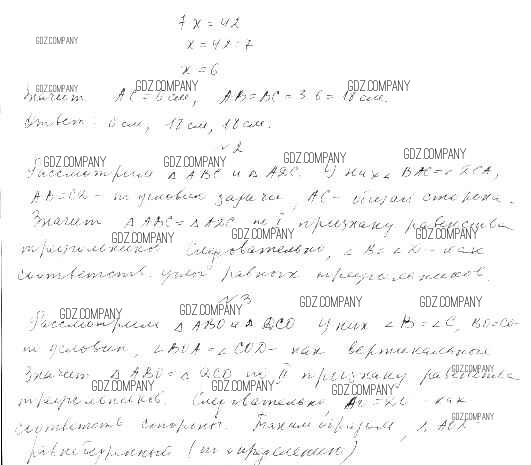 7x = 42
GDZ.COMPANY
x = 42:7
x = 6
GDZ.COMPANY GDZ.COMPANY GDZ.COMPANY
Значит AC = 6 см, AB = BC = 3·6 = 18 см.
Ответ: 6 см, 18 см, 18 см.
№2
GDZ.COMPANY GDZ.COMPANY GDZ.COMPANY
Рассмотрим △ABC и △ADC. У них ∠BAC = ∠DCA,
AB = CD - по условию задачи, AC - общая сторона.
Значит △ABC = △ADC по I признаку равенства
GDZ.COMPANY GDZ.COMPANY GDZ.COMPANY
треугольников. Следовательно, ∠B = ∠D - как
соответств. углы равных треугольников.
№3
GDZ.COMPANY GDZ.COMPANY GDZ.COMPANY GDZ.COMPANY
Рассмотрим △ABO и △DCO. У них ∠B = ∠C, BO = CO -
по условию, ∠BOA = ∠COD - как вертикальные
GDZ.COMPANY
Значит △ABO = △DCO по II признаку равенства
GDZ.COMPANY GDZ.COMPANY GDZ.COMPANY
треугольников. Следовательно, как
GDZ.COMPANY
соответств. стороны. Таким образом, △
равнобедренный (по определению)